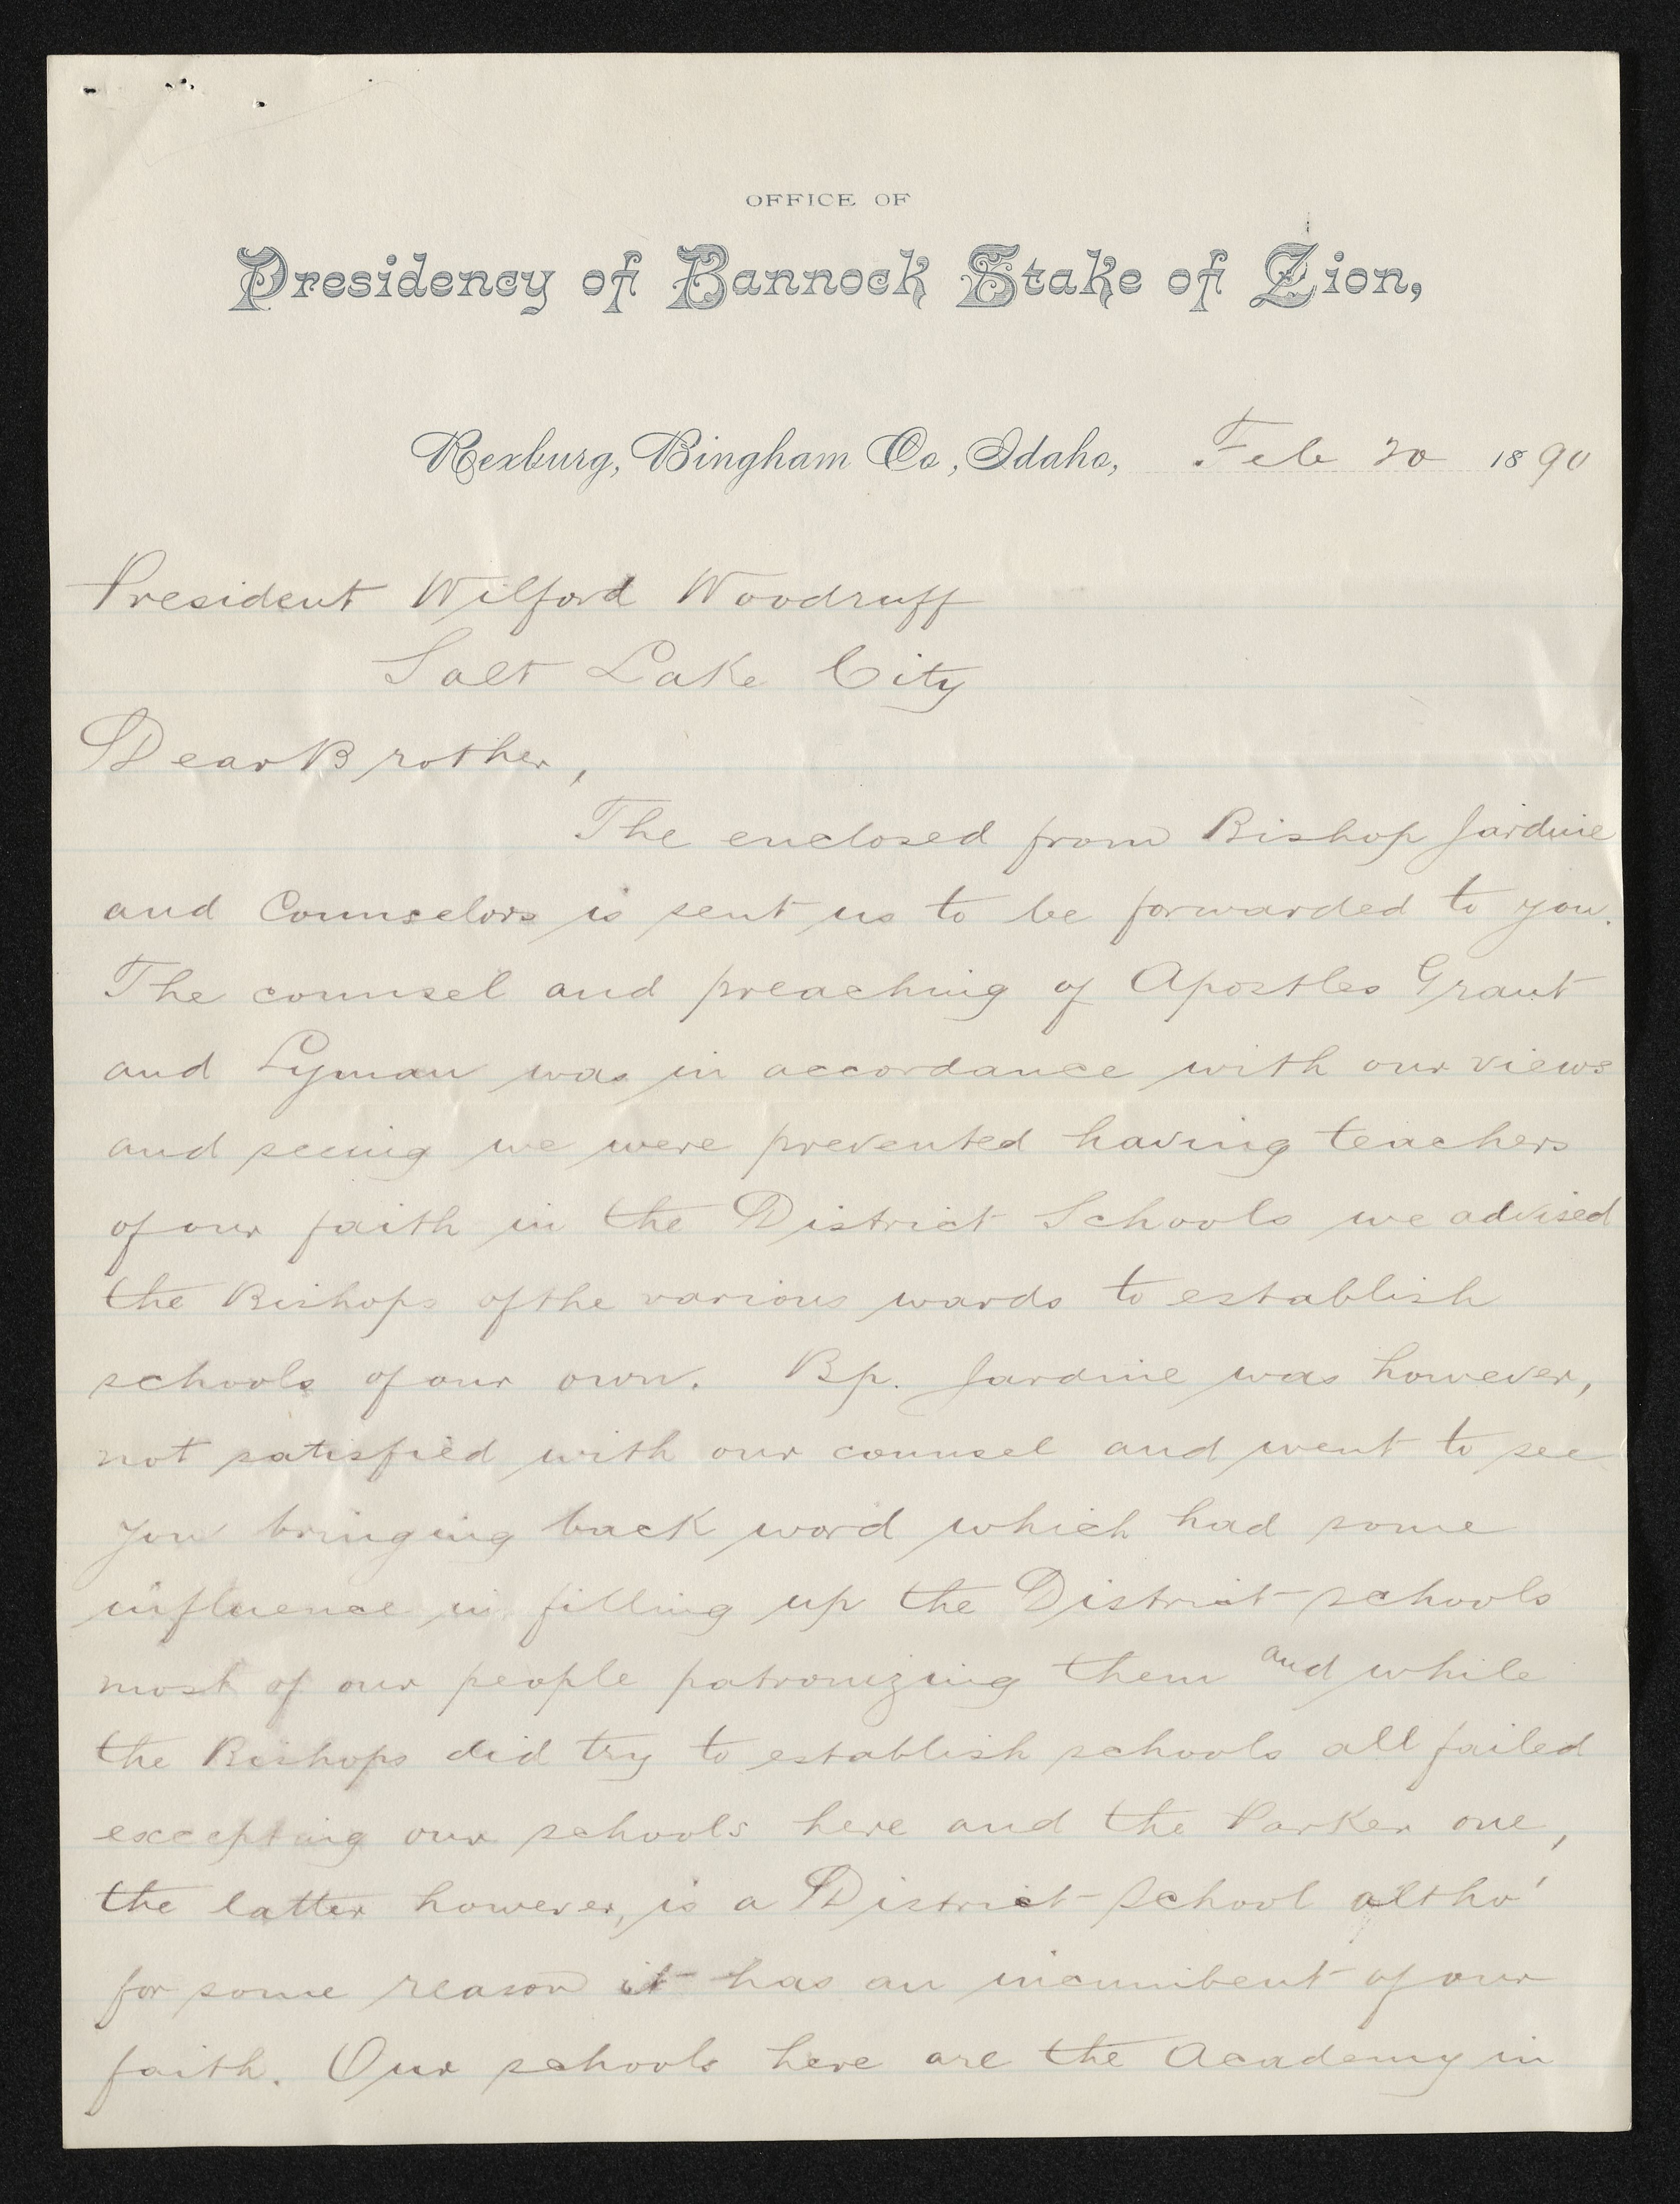 OFFICE OF
Presidency of Bannock Stake of Zion,
Rexburg, Bingham Co., Idaho, Feb 20 1890
President Wilford Woodruff
Salt Lake City
Dear Brother,
The enclosed from Bishop Jardine
and Counselors is sent us to be forwarded to you.
The counsel and preaching of Apostles Grant
and Lyman was in accordance with our views
and seeing we were prevented having teachers
of our faith in the District Schools we advised
the Bishops of the various wards to establish
schools of our own. Bp. Jardine was however,
not satisfied with our counsel and went to see
you bringing back word which had some
influence in filling up the District schools
most of our people patronizing them and while
the Bishops did try to establish schools all failed
excepting our schools here and the Parker one,
the latter however, is a District School altho'
for some reason it has an incumbent of our
faith. Our schools here are the Academy in